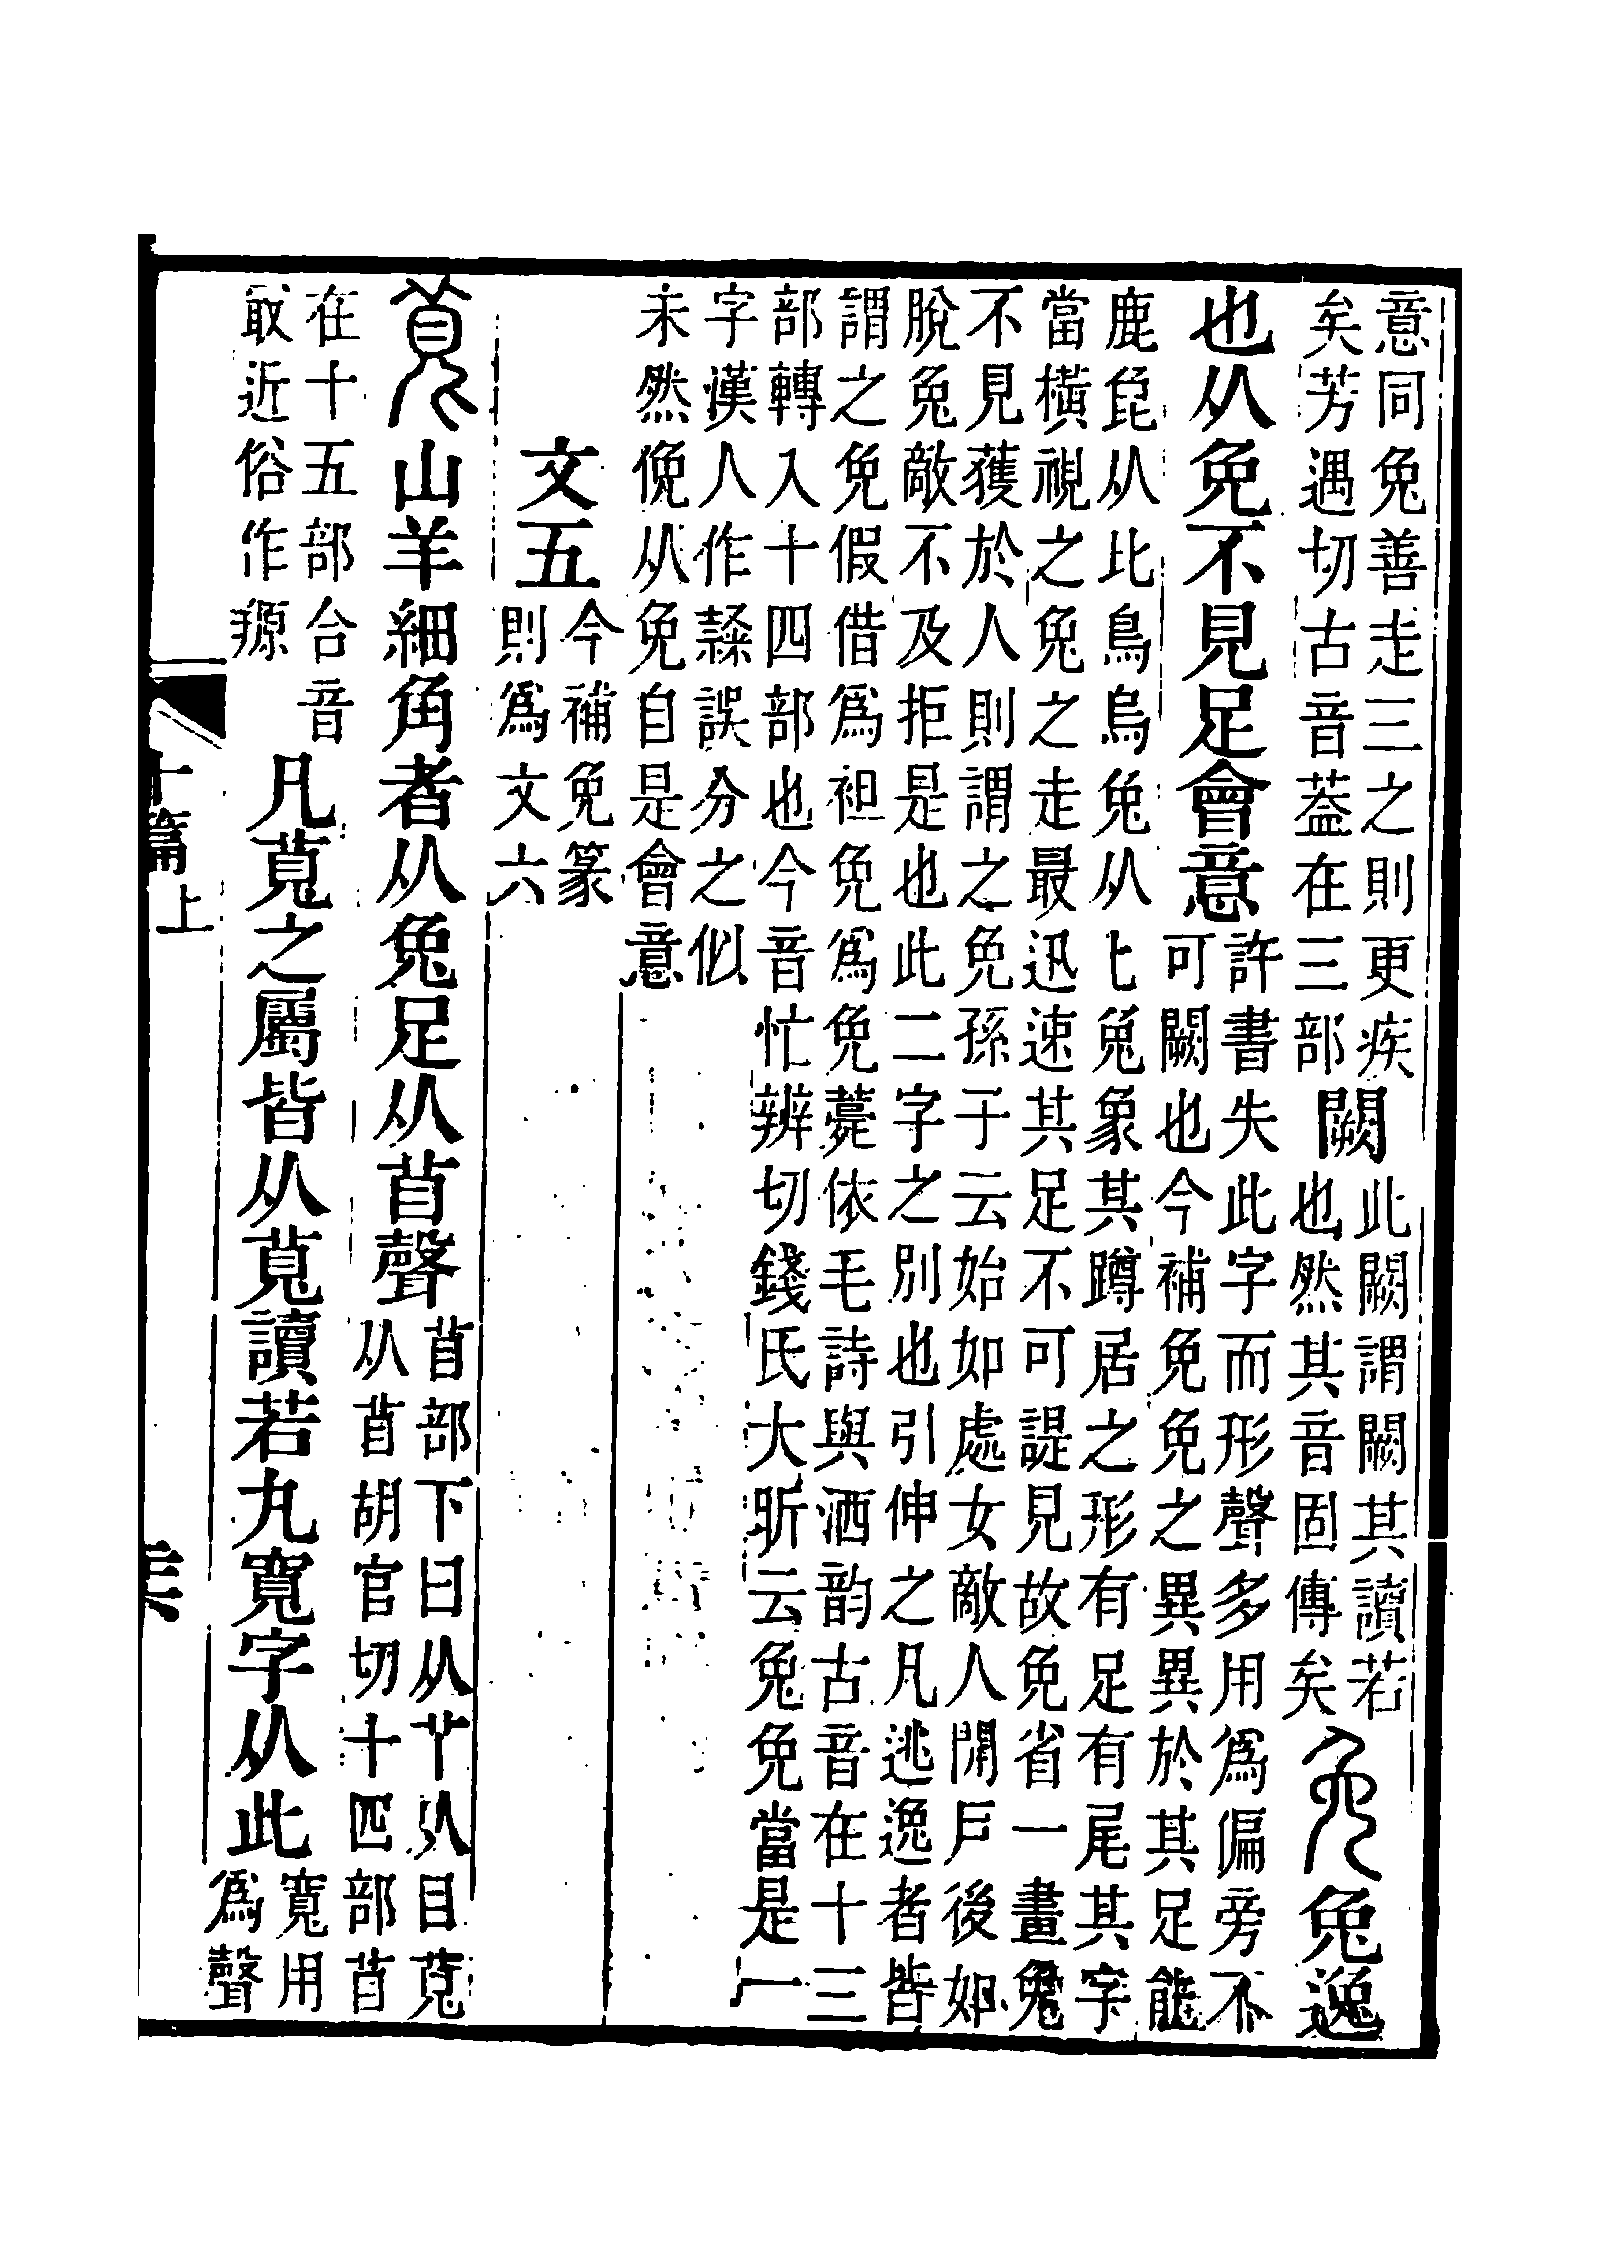 意同兔善走三之則更疾
矣芳遇切古音葢在三部
闕
此闕謂闕其讀若
也然其音固傳矣
兔逸
也从免不見足會意
許書失此字而形聲多用爲偏旁不
可闕也今補免免之異異於其足能
鹿㲋从比鳥烏兔从匕兔象其蹲居之形有足有尾其字
當橫視之兔之走最迅速其足不可諟見故免省一畫兔
不見獲於人則謂之免孫子云始如處女敵人開戶後如
脫兔敵不及拒是也此二字之別也引伸之凡逃逸者皆
謂之免假借爲袒免爲免薨依毛詩與洒韵古音在十三
部轉入十四部也今音忙辨切錢氏大昕云兔免當是一
字漢人作𨽻誤分之似
未然俛从免自是會意
文五
今補免篆
則爲文六
山羊細角者从兔足从𥄕聲
𥄕部下曰从𦫳从目莧
从𥄕胡官切十四部𥄕
在十五部合音
㝡近俗作羱
凡莧之屬皆从莧讀若丸寬字从此
寬用
爲聲
十篇上